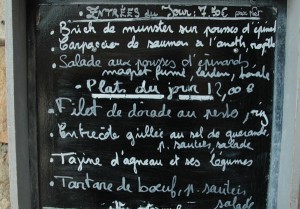 ENTRÉES du Jour: 7.50€
• Brick de munster sur pousses d'épinard
• Carpaccio de saumon à l'aneth,
• Salade aux pousses d'épinards,
magret fumé, lardon,
• Plats du jour 12,00€
• Filet de dorade au pesto, riz
• Entrecôte grillée au sel de guérande
p. sautées, salade
• Tajine d'agneau et ses légumes
• Tartare de bœuf, p. sautées
salade